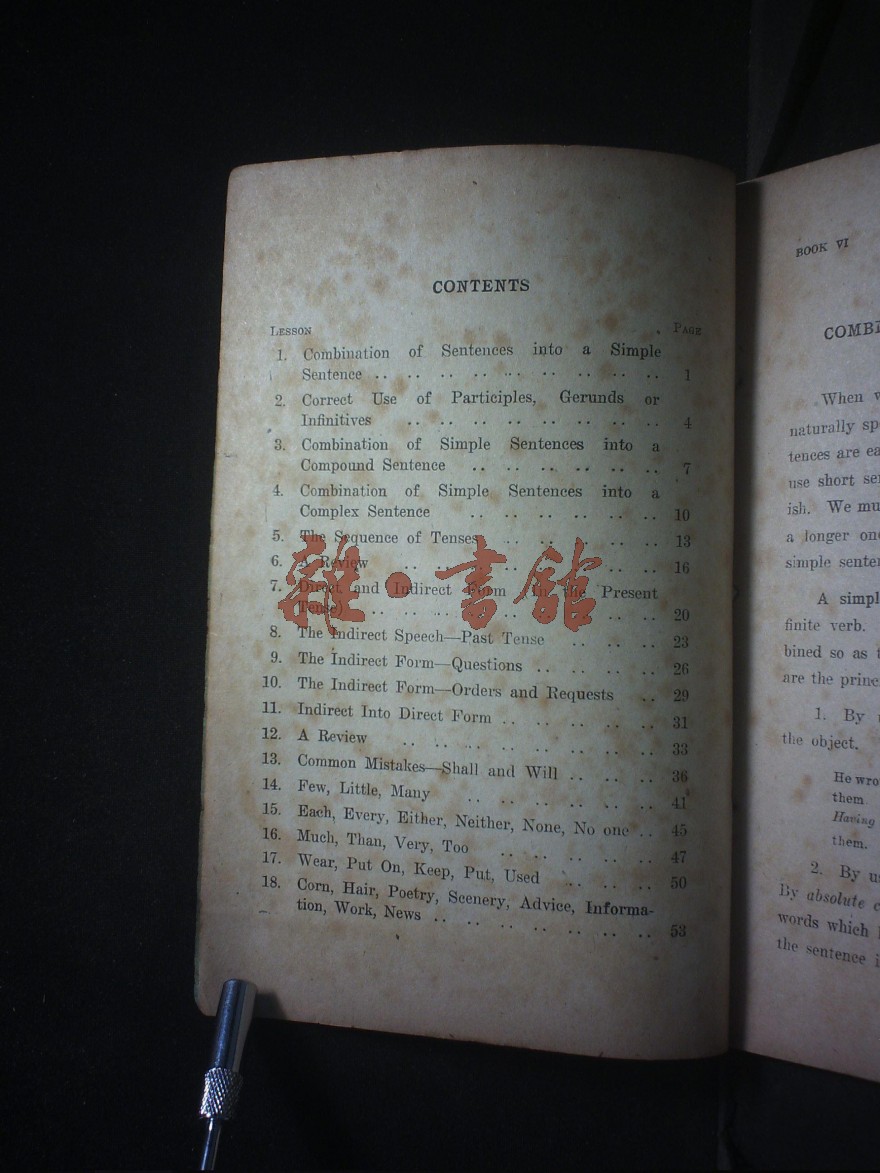 CONTENTS
LESSON PAGE
1. Combination of Sentences into a Simple
Sentence .. .. .. .. .. .. .. .. .. 1
2. Correct Use of Participles, Gerunds or
Infinitives .. .. .. .. .. .. .. .. 4
3. Combination of Simple Sentences into a
Compound Sentence .. .. .. .. .. .. 7
4. Combination of Simple Sentences into a
Complex Sentence .. .. .. .. .. .. 10
5. The Sequence of Tenses .. .. .. .. .. 13
6. A Review .. .. .. .. .. .. .. .. 16
7. Direct and Indirect Form (In the Present
Tense) .. .. .. .. .. .. .. .. .. 20
8. The Indirect Speech—Past Tense .. .. .. 23
9. The Indirect Form—Questions .. .. .. .. 26
10. The Indirect Form—Orders and Requests .. 29
11. Indirect Into Direct Form .. .. .. .. .. 31
12. A Review .. .. .. .. .. .. .. .. 33
13. Common Mistakes—Shall and Will .. .. .. 36
14. Few, Little, Many .. .. .. .. .. .. 41
15. Each, Every, Either, Neither, None, No one .. 45
16. Much, Than, Very, Too .. .. .. .. .. 47
17. Wear, Put On, Keep, Put, Used .. .. .. .. 50
18. Corn, Hair, Poetry, Scenery, Advice, Informa-
tion, Work, News .. .. .. .. .. .. .. 53
雜·書館
BOOK VI
COMBI
When
naturally sp
tences are ea
use short se
ish. We mu
a longer on
simple sente
A simpl
finite verb.
bined so as
are the princ
1. By
the object.
He wro
them
Having
them.
2. By us
By absolute c
words which
the sentence i